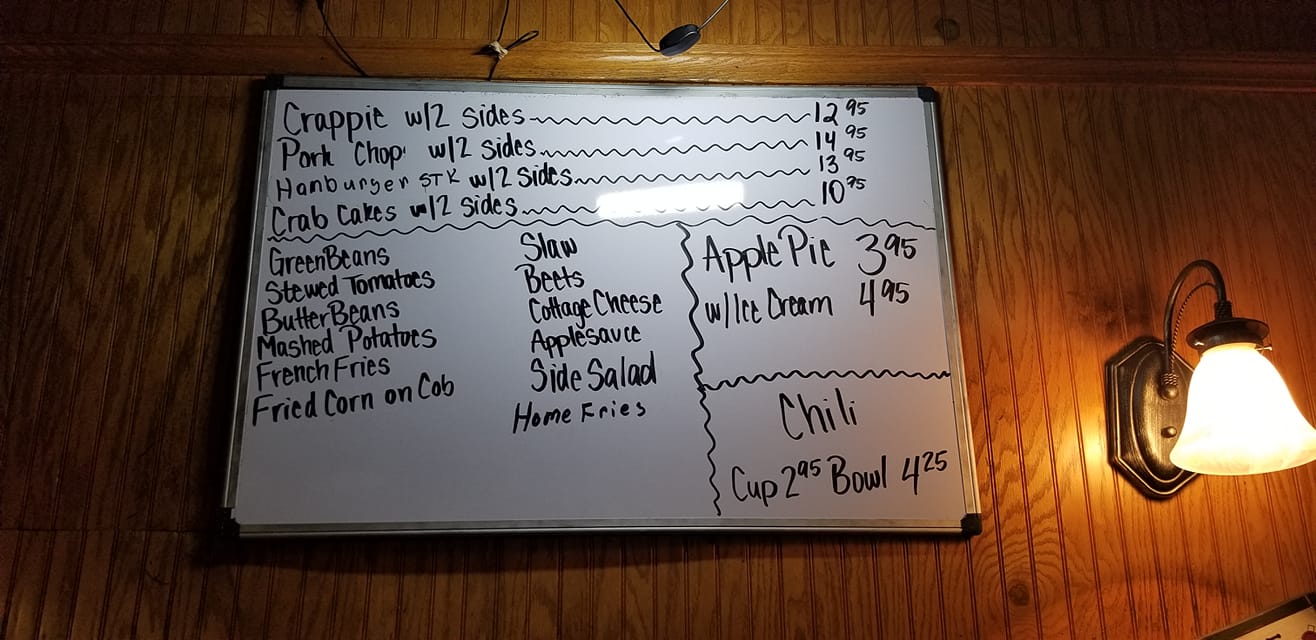 Crappie w/2 sides 12 95
Pork Chop w/2 sides 14 95
Hamburger STK w/2 sides 13 95
Crab Cakes w/2 sides 10 75
Green Beans
Stewed Tomatoes
Butter Beans
Mashed Potatoes
French Fries
Fried Corn on Cob
Slaw
Beets
Cottage Cheese
Applesauce
Side Salad
Home Fries
Apple Pie 3 95
w/Ice Cream 4 95
Chili
Cup 2 95 Bowl 4 25